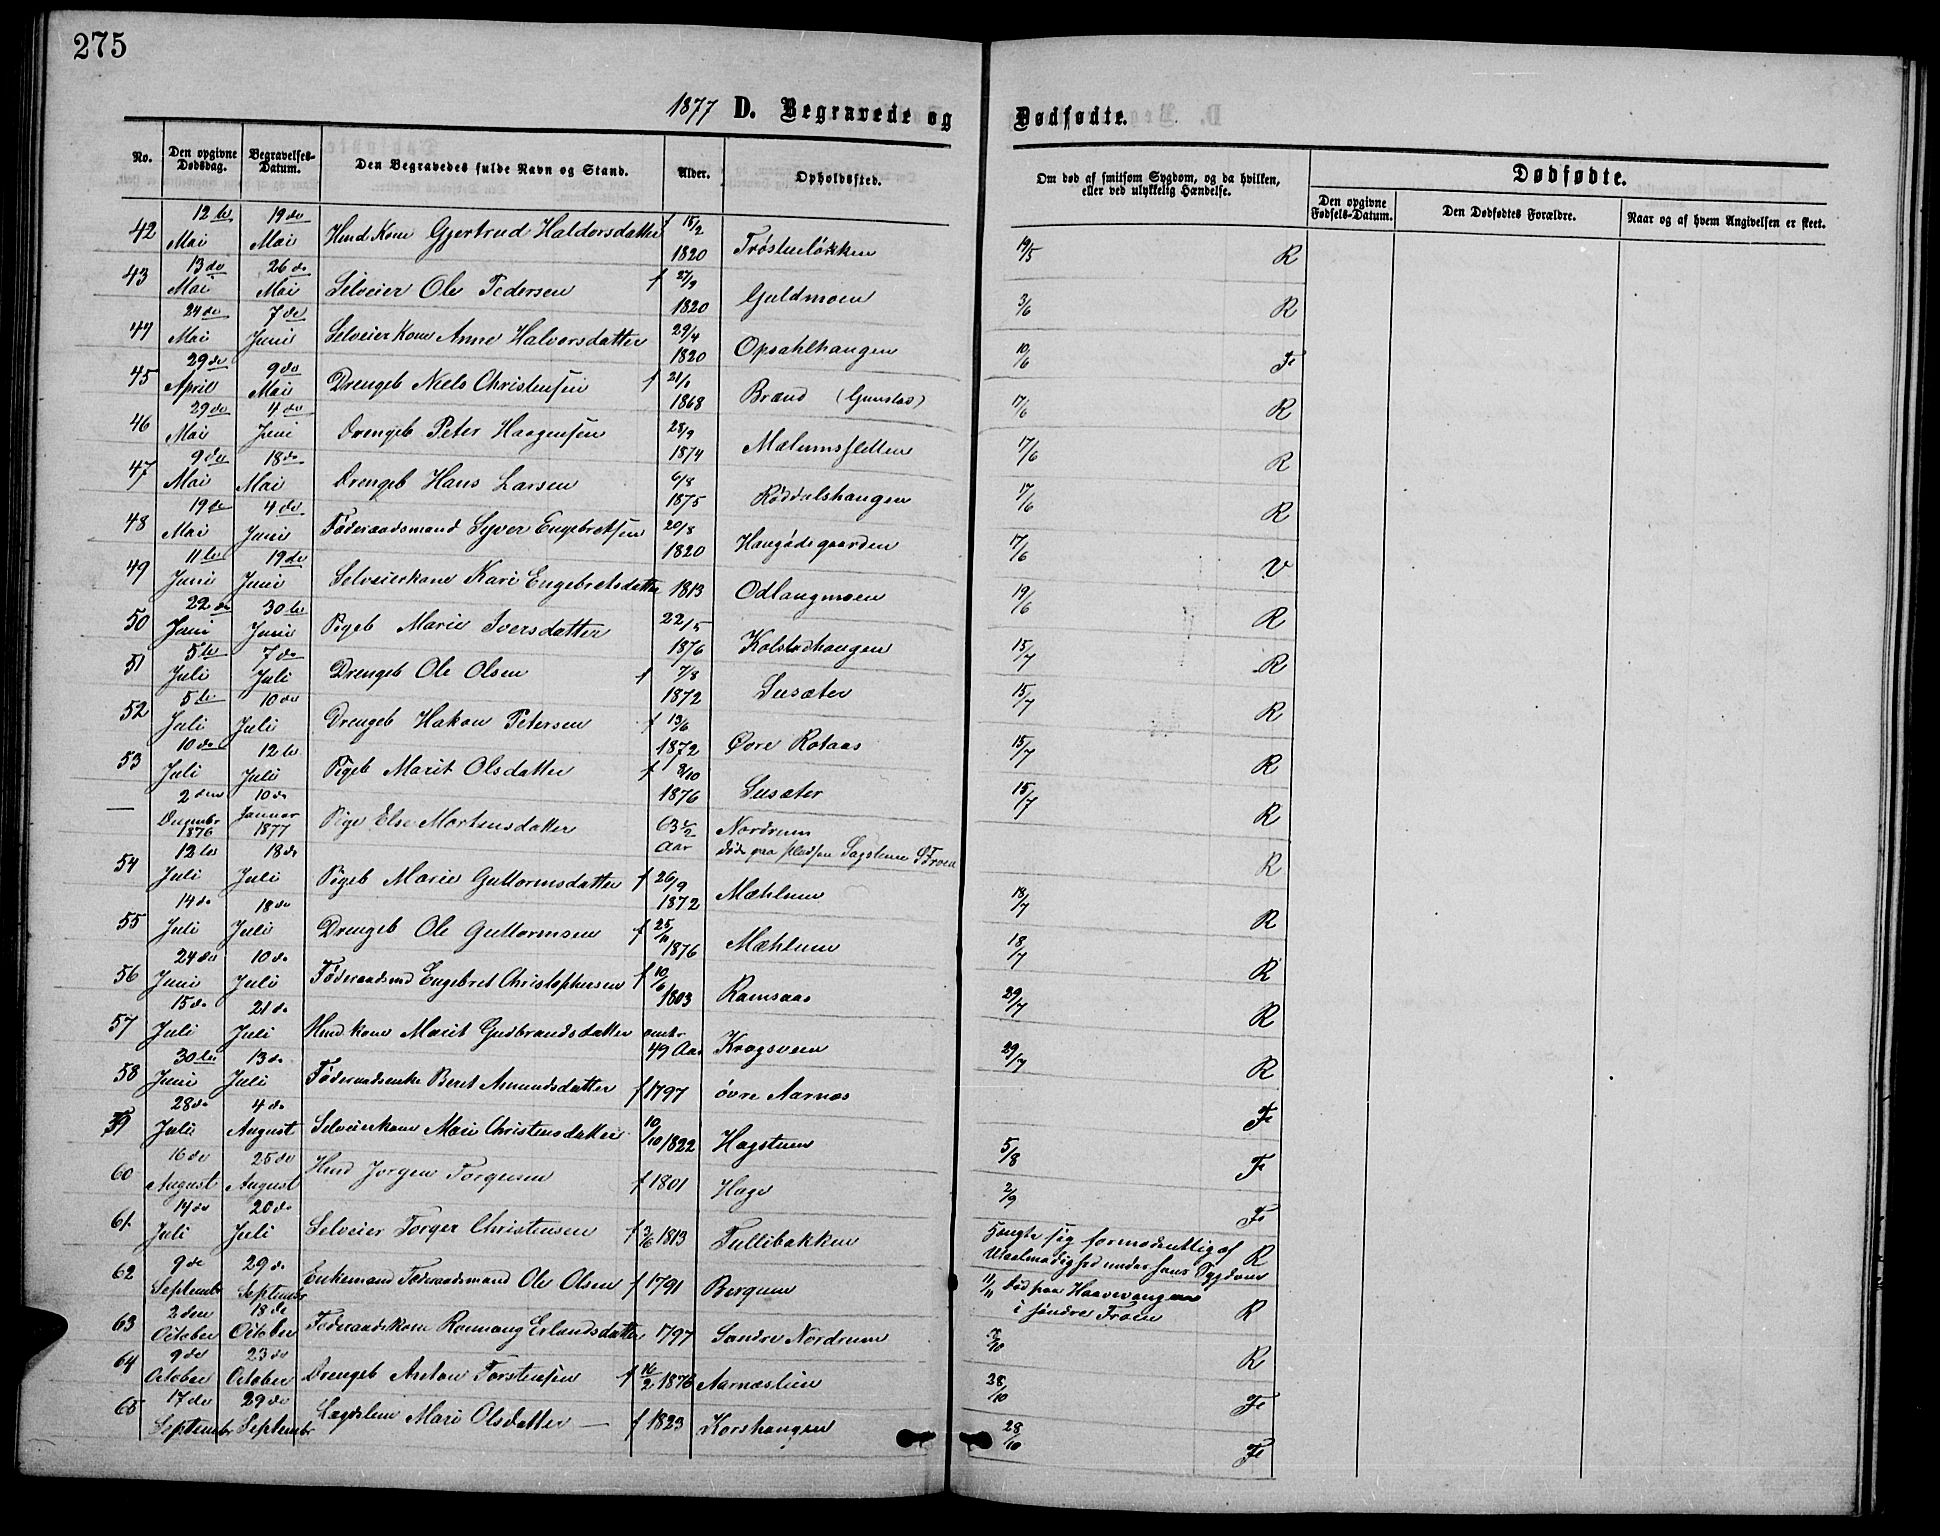 275
1877 D. Begravede og Dødfødte.
No. Den opgivne Dødsdag. Begravelses-Datum. Den Begravedes fulde Navn og Stand. Alder. Opholdssted. Om død af smitsom Sygdom, og da hvilken, eller ved ulykkelig Hændelse. Dødfødte.
Den opgivne Fødsels-Datum. Den Dødfødtes Forældre. Naar og af hvem Angivelsen er skeet.
42 12te Mai 19de Mai Hmd Kone Gjertrud Haldorsdatter f 15/2 1820 Trøstueløkken 19/5 R
43 13de Mai 26de Mai Selveier Ole Pedersen f 27/9 1820 Guldmoen 3/6 R
44 24de Mai 7de Juni Selveier Kone Anne Halvorsdatter 29/4 1820 Opsahlhaugen 10/6 F
45 29de April 9de Mai Drengeb Niels Christensen f 21/1 1868 Brænd 17/6 R
46 29de Mai 4de Juni Drengeb Peter Haagensen 28/9 1874 Mælumsfletten 17/6 R
47 9de Mai 18de Mai Drengeb Hans Larsen 6/8 1875 Røddalshaugen 17/6 R
48 19de Mai 4de Juni Føderaadsmand Syver Engebretsen 20/8 1820 Haugødegaarden 17/6 V
49 11te Juni 19de Juni Selveierkone Kari Engebretsdatter 1813 Odlaugmoen 19/6 R
50 22de Juni 30te Juni Pigeb Marie Iversdatter 22/5 1876 Kolstadhaugen 15/7 R
51 5te Juli 7de Juli Drengeb Ole Olsen f 7/8 1872 Susæter 15/7 R
52 5te Juli 10de Juli Drengeb Hakon Petersen f 13/6 1872 Øvre Rotaas 15/7 R
53 10de Juli 12te Juli Pigeb Marit Olsdatter f 9/10 1876 Susæter 15/7 R
— 2den Decembr 1876 10de Januar 1877 Pige Else Mortensdatter 63 1/2 Aar Nordrum
døde paa pladsen Sagstuen SFroen R
54 12te Juli 18de Juli Pigeb Marie Guttormsdatter f 26/9 1872 Mæhlum 18/7 R
55 14de Juli 18de Juli Drengeb Ole Guttormsen f 25/11 1876 Mæhlum 18/7 R
56 24de Juni 10de Juli Føderaadsmd Engebret Christophersen f 10/6 1803 Ramsaas 29/7 R
57 15de Juli 21de Juli Hmd. kone Marit Gudbrandsdatter omtr 49 Aar Kragsveen 29/7 R
58 30te Juni 13de Juli Føderaadsenke Beret Amundsdatter f 1797 øvre Aarnæs F
59 28de Juli 4de August Selveierkone Mari Christensdatter 10/10 1822 Hagstuen 5/8 F
60 16de August 25de August Hmd Jørgen Torgersen f 1801 Hage 2/9 F
61 14de Juli 20de Juli Selveier Torger Christensen f 3/6 1813 Tullibakken
hengte sig formodentlig af R
Uselmadighed under hans Sygdom
62 9de Septembr 29de Septembr Enkemand Føderaadsmand Ole Olsen f 1791 Bergum 11/11 død paa Haavevangen
i søndre Froen R
63 2den October 18de October Føderaadskone Rønnaug Erlandsdatter 1797 Søndre Nordrum 7/10 R
64 9de October 23de October Drengeb Anton Torstensen f 16/2 1876 Aarnæslien 28/10 F
65 17de Septembr 29de Septembr Lægdslem Mari Olsdatter — f 1823 Korshaugen 28/10 F